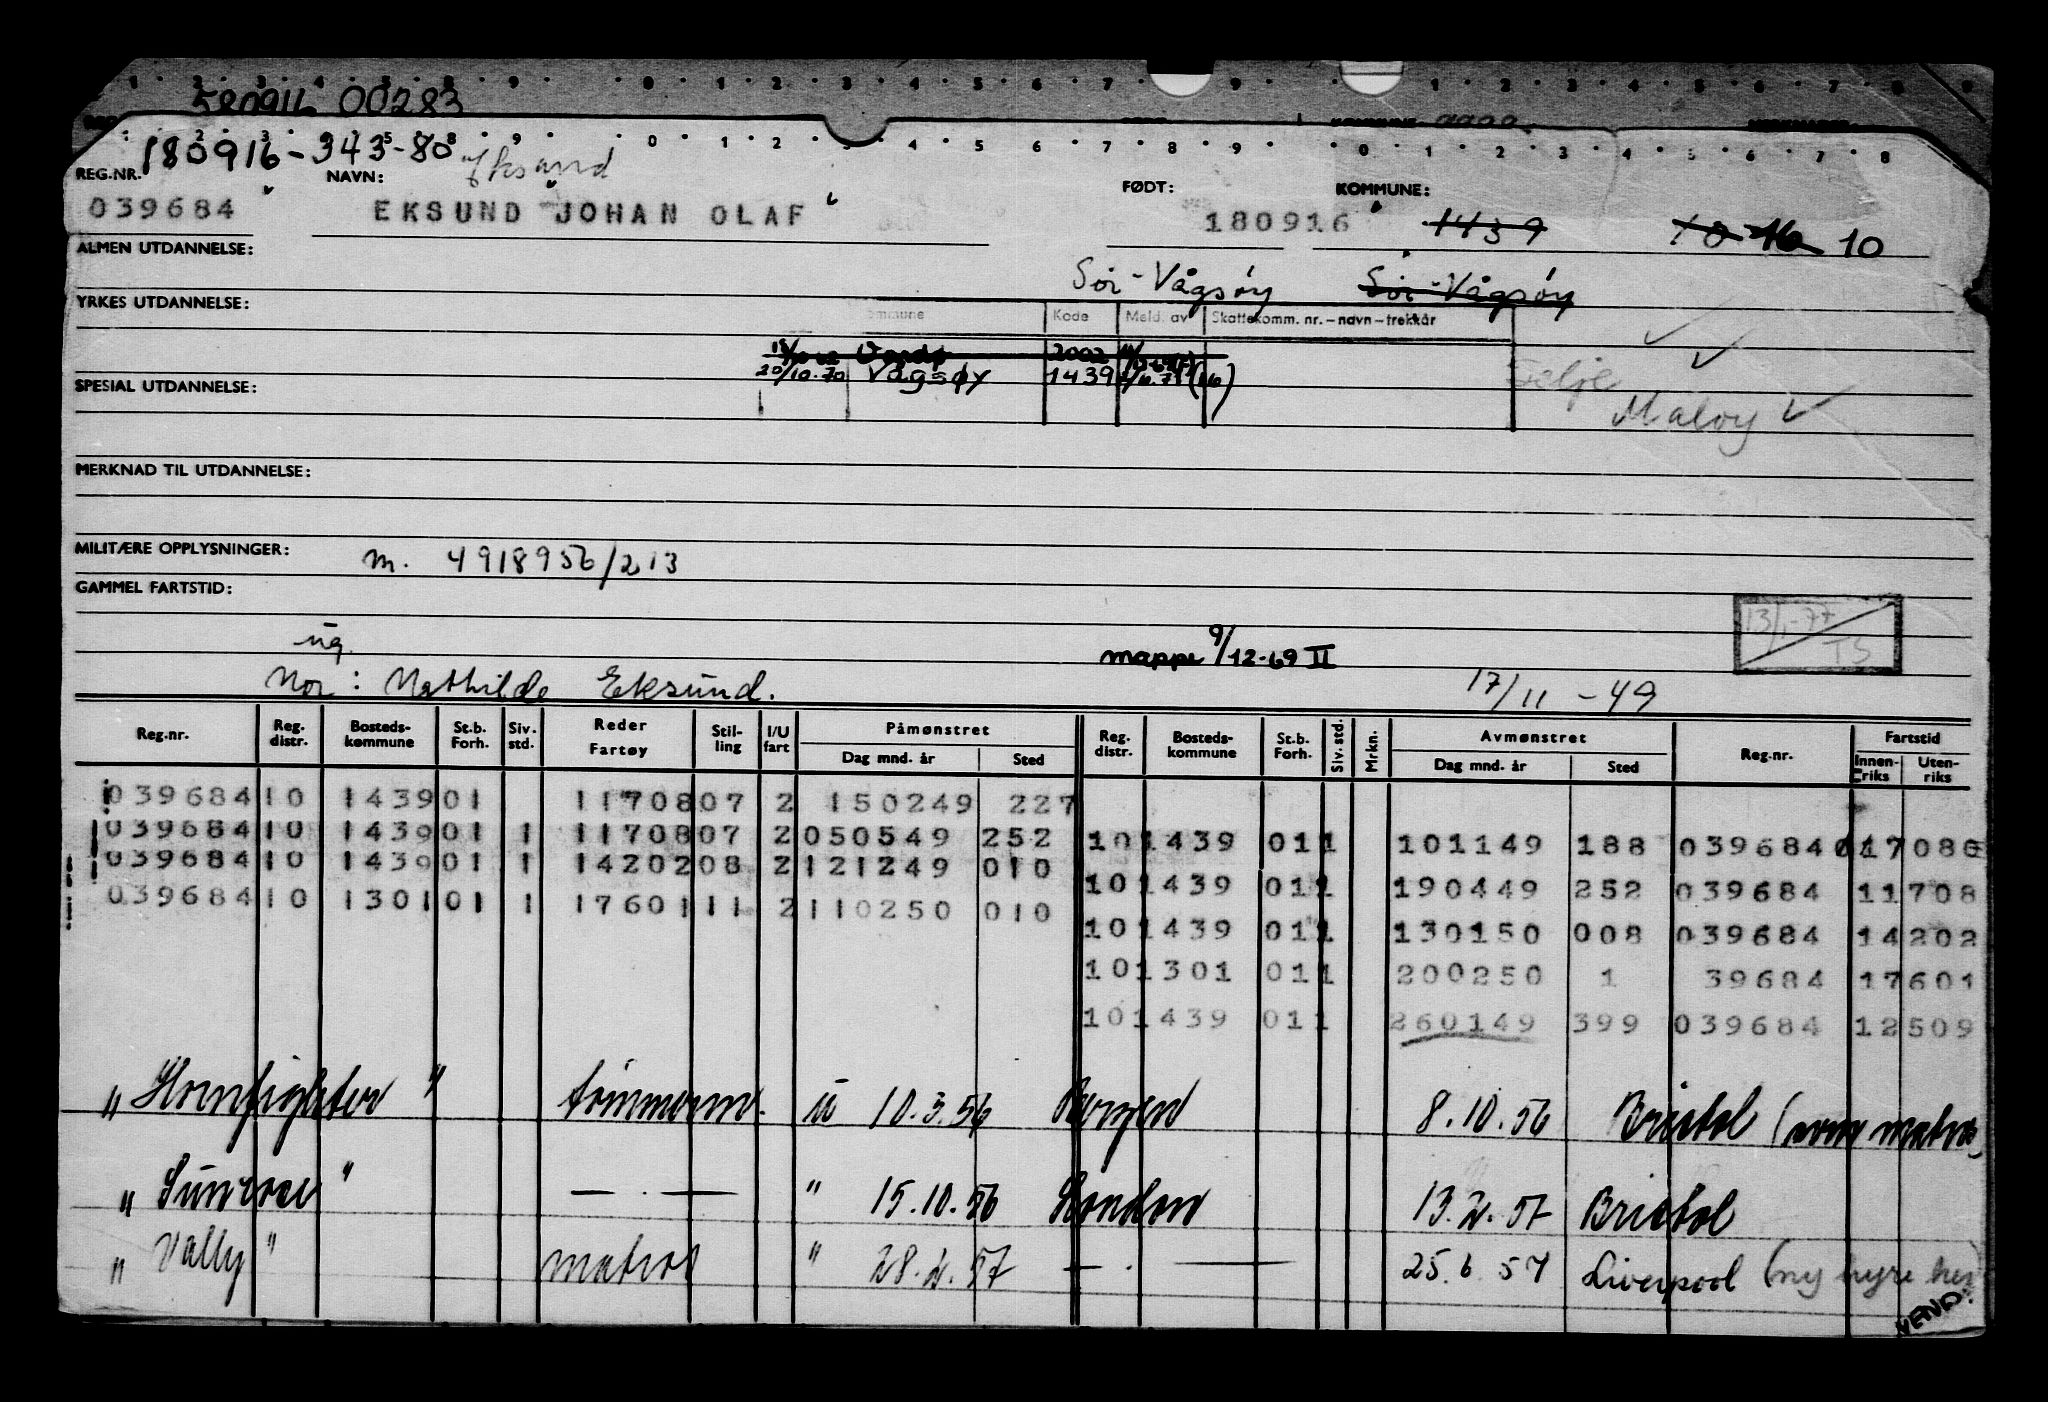 580916 00283
180916-343-80
REG.NR. NAVN: FØDT: KOMMUNE:
039684 EKSUND JOHAN OLAF 180916 1439 10 16 10
ALMEN UTDANNELSE:
Sør-Vågsøy Sør-Vågsøy
YRKES UTDANNELSE:
Kode Meld. av Skattekomm. nr.-navn-trekkår
Vardø 2002
20/10.70 Vågsøy 1439
Selje
SPESIAL UTDANNELSE:
Måløy
MERKNAD TIL UTDANNELSE:
MILITÆRE OPPLYSNINGER: m. 4918956/213
GAMMEL FARTSTID:
13/1-77 TS
ug.
mappe 9/12-69 II
Mor: Mathilde Eksund. 17/11-49
Reg.nr. Reg. distr. Bosteds-kommune St.b. Forh. Siv. std. Reder Fartøy Stil-ling I/U fart Påmønstret Dag mnd. år Sted Reg. distr. Bosteds-kommune St.b. Forh. Siv. std. Mrkn. Avmønstret Dag mnd. år Sted Reg.nr. Fartstid Innen-riks Uten-riks
039684 10 1439 01 11708 07 2 150249 227
039684 10 1439 01 1 11708 07 2 050549 252 10 1439 01 1 101149 188 039684
039684 10 1439 01 1 14202 08 2 121249 010 10 1439 01 1 190449 252 039684 11708
039684 10 1301 01 1 17601 11 2 110250 010 10 1439 01 1 130150 008 039684 14202
10 1301 01 1 200250 1 39684 17601
10 1439 01 1 260149 399 039684 12509
"Hornfighter" tømmerm. u 10.3.56 Bergen 8.10.56 Bristol (som matros)
" — . — " 15.10.56 London 13.2.57 Bristol
"Vally" matros " 28.2.57 — . — 25.6.57 Liverpool (ny hyre her)
VEND.